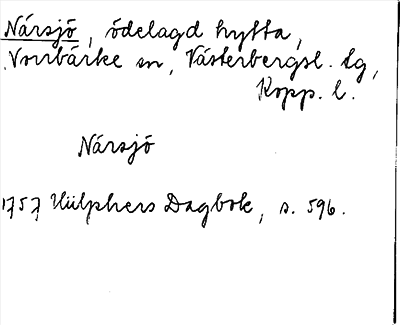 Närsjö, ödelagd hytta,
Norrbärke sn, Västerbergsl. tg,
Kopp. l.
Närsjö
1757 Hülphers Dagbok, s. 596.